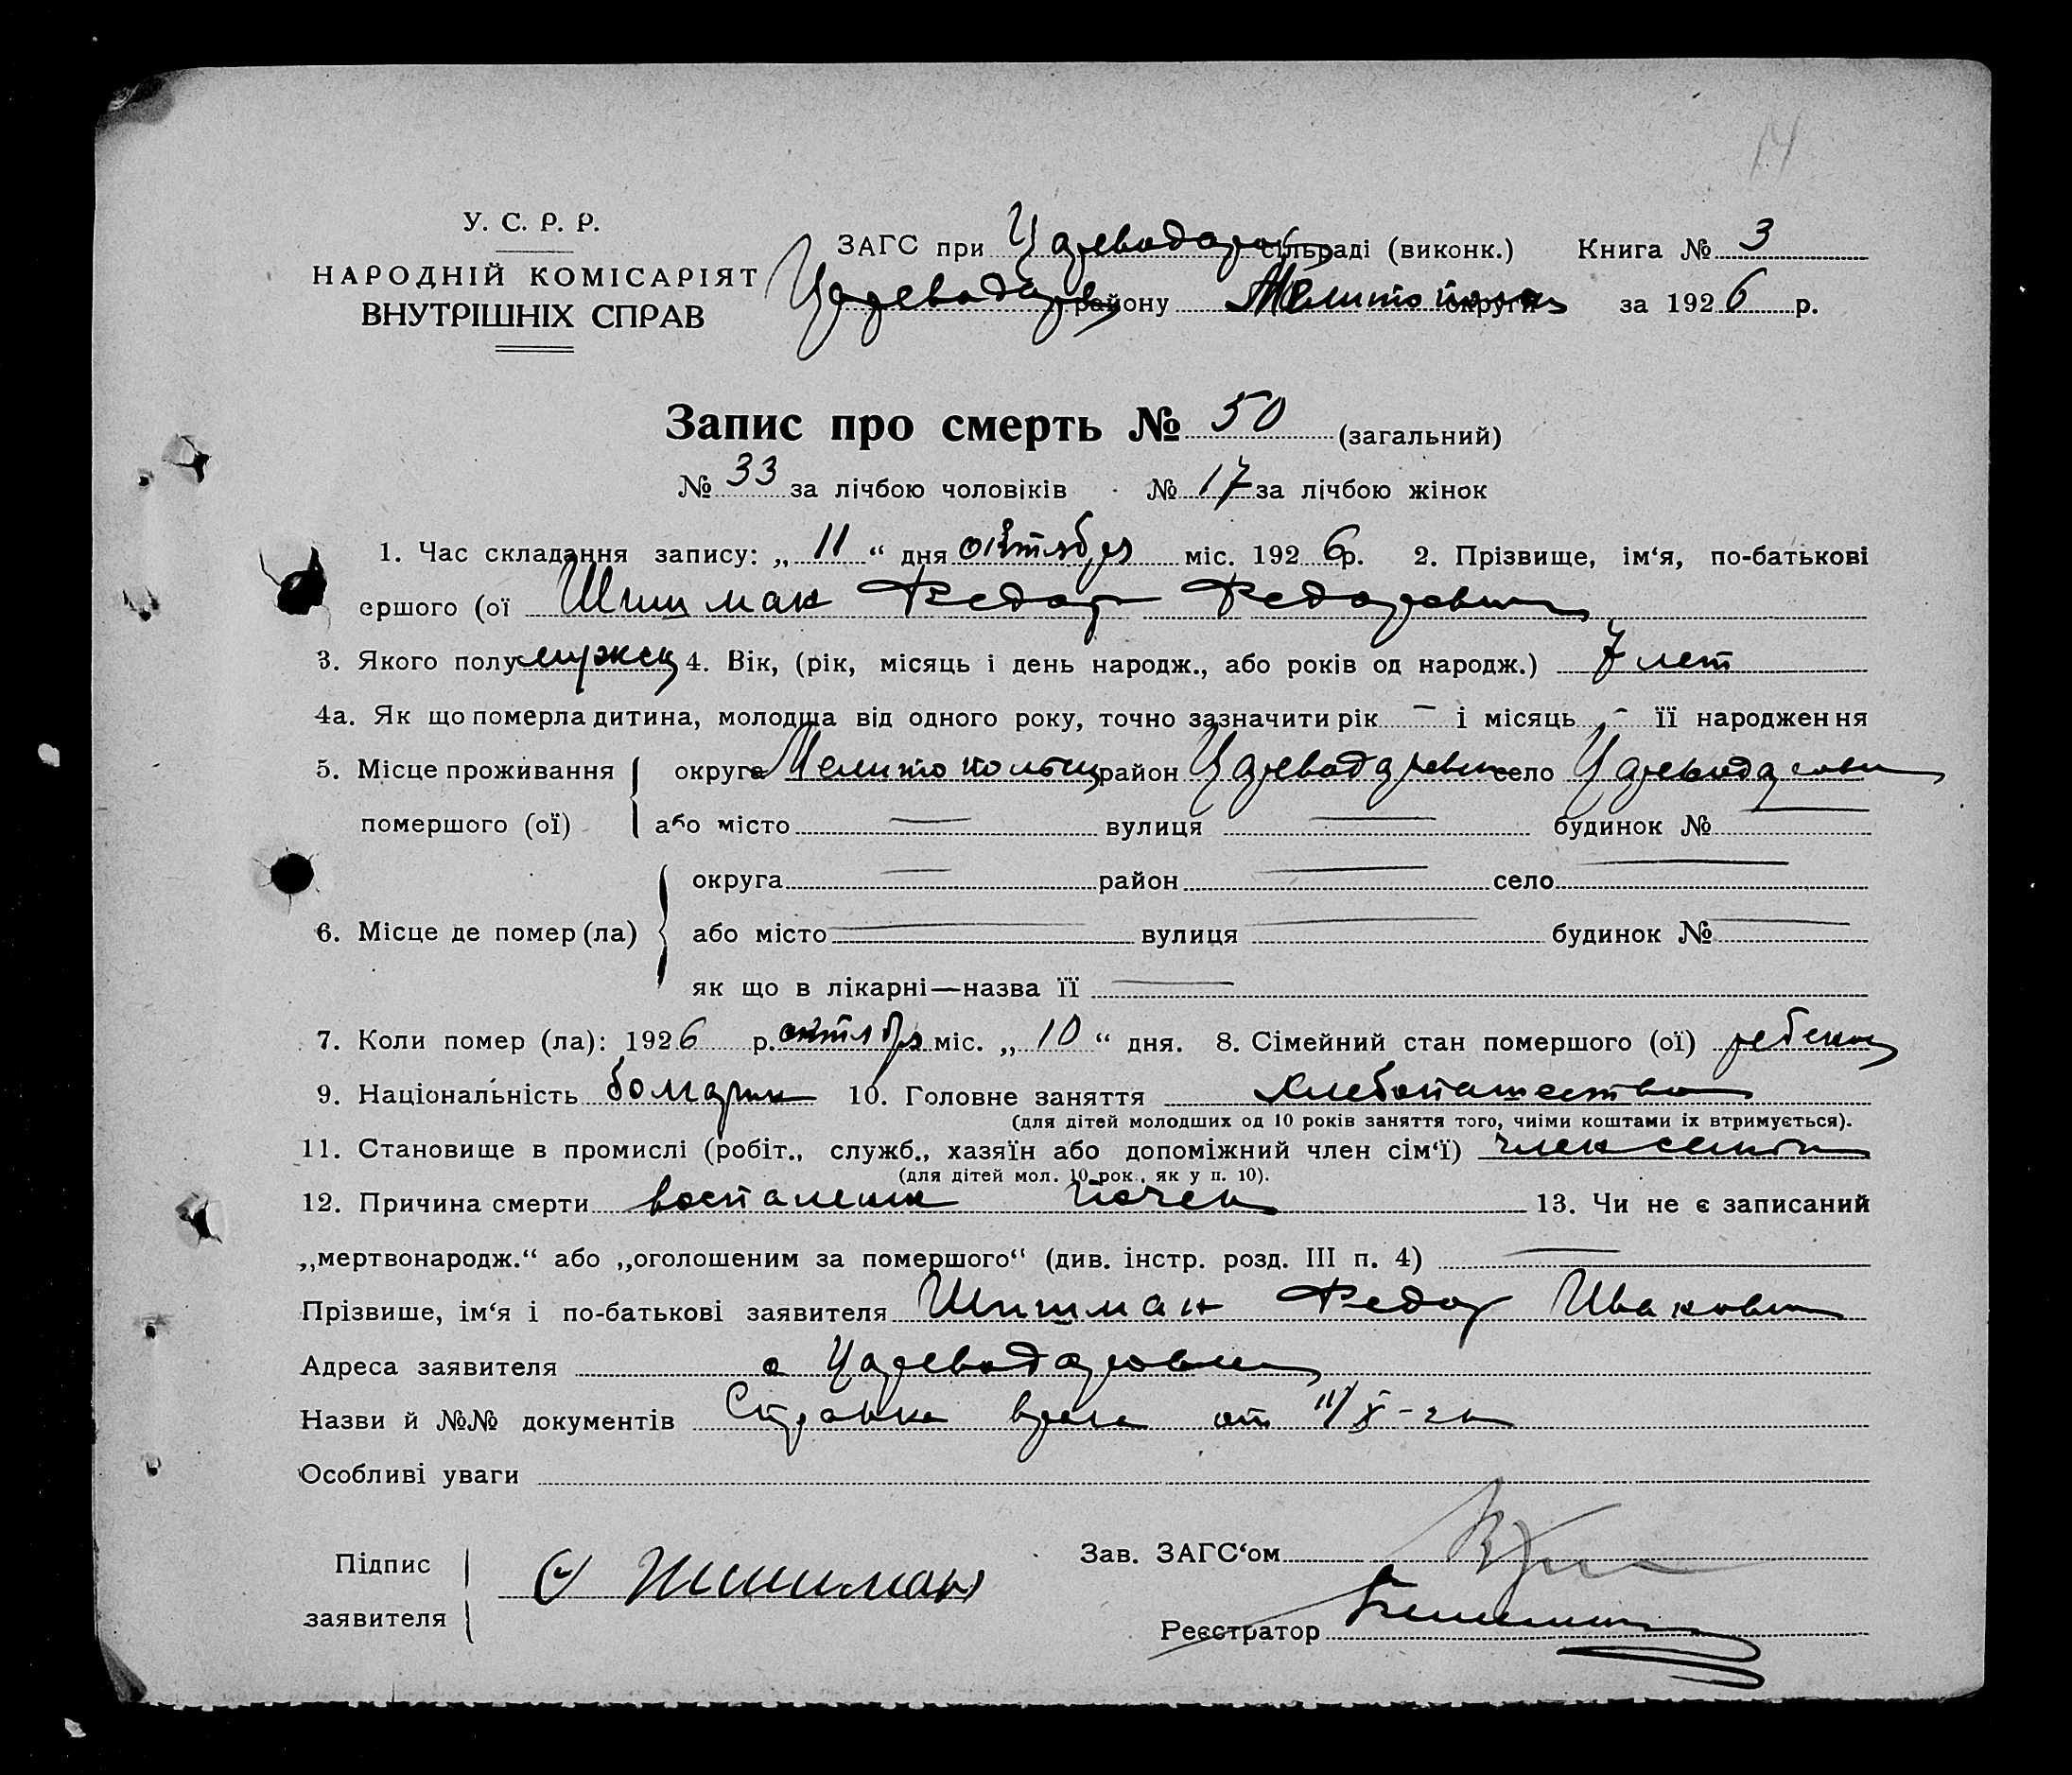 14
У. С. Р. Р.
НАРОДНІЙ КОМІСАРІЯТ
ВНУТРІШНІХ СПРАВ
ЗАГС при Царевода сільраді (виконк.) Книга № 3
Царевода району Мелитопол округи за 1926 р.
Запис про смерть № 50 (загальний)
№ 33 за лічбою чоловіків № 17 за лічбою жінок
1. Час складання запису: „ 11 “ дня октября міс. 1926 р. 2. Прізвище, ім‘я, по-батькові
ершого (ої Шишман Федор Федорович
3. Якого полу мужск 4. Вік, (рік, місяць і день народж., або років од народж.) 7 лет
4а. Як що померла дитина, молодша від одного року, точно зазначити рік — і місяць - її народження
5. Місце проживання округа Мелитопольск район Цареводаровк село Цареводаровк
помершого (ої) або місто — вулиця — будинок № —
округа — район — село —
6. Місце де помер (ла) або місто — вулиця — будинок № —
як що в лікарні—назва її —
7. Коли помер (ла): 1926 р. октября міс. „ 10 “ дня. 8. Сімейний стан помершого (ої) ребенок
9. Національність болгарин 10. Головне заняття хлебопашество
(для дітей молодших од 10 років заняття того, чиїми коштами їх втримується).
11. Становище в промислі (робіт., служб., хазяїн або допоміжний член сім‘ї) член семьи
(для дітей мол. 10 рок., як у п. 10).
12. Причина смерти воспаление почек 13. Чи не є записаний
„мертвонародж.“ або „оголошеним за помершого“ (див. інстр. розд. III п. 4) —
Прізвише, ім‘я і по-батькові заявителя Шишман Федор Иванович
Адреса заявителя с Цареводаровка
Назви й №№ документів Справка врача от 11/X-
Особливі уваги
Підпис
заявителя Шишман
Зав. ЗАГС‘ом
Реєстратор